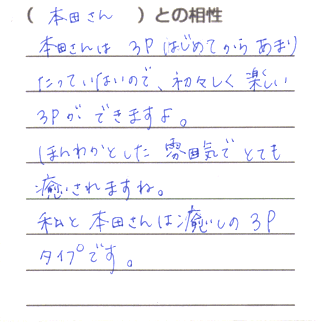 （ 本田さん ）との相性
本田さんは 3P はじめてから あまり
たっていないので、初々しく 楽しい
3Pが できますよ。
ほんわかとした 雰囲気で とても
癒されますね。
私と 本田さんは癒しの 3P
タイプです。